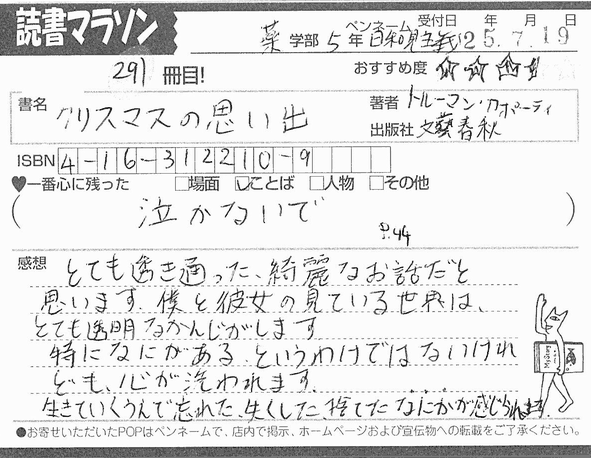 読書マラソン
ペンネーム 受付日 年 月 日
薬 学部 5年 日和見主義 25.7.19
291 冊目!
おすすめ度 ☆☆☆☆
書名 クリスマスの思い出
著者 トルーマン・カポーティ
出版社 文藝春秋
ISBN 4-16-312210-9
♥一番心に残った □場面 ☑ことば □人物 □その他
( 泣かないで )
P.44
感想 とても透き通った、綺麗なお話だと
思います。僕と彼女の見ている世界は、
とても透明なかんじがします
特になにがある、というわけではないけれ
ども、心が洗われます。
生きていくうんで忘れた、失くした捨てたなにかが感じられます。
●お寄せいただいたPOPはペンネームで、店内で掲示、ホームページおよび宣伝物への転載をご了承ください。